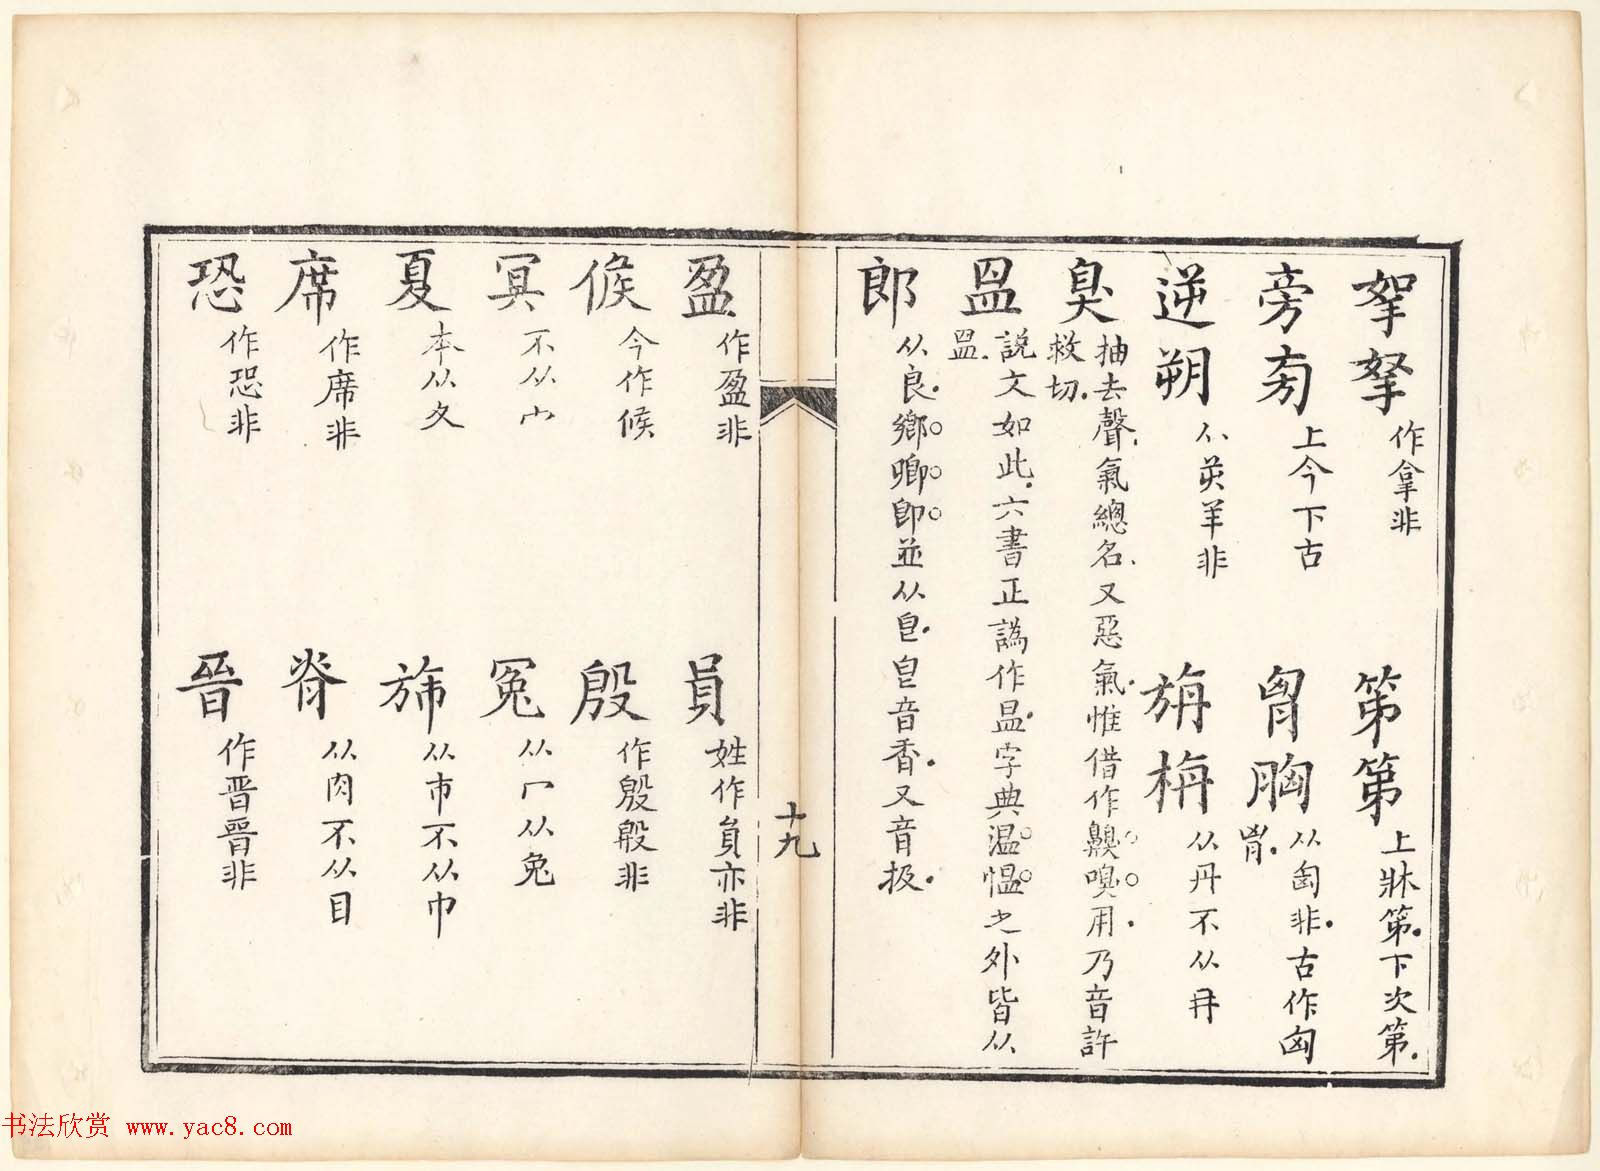 挐拏 作拿非
第第 上牀第下次第
旁㫄 上今下古
胷胸 从匈非古作匈
胷
逆朔 从屰羊非
旃栴 从丹不从冉
臭 抽去聲氣總名又惡氣惟借作齅嗅用乃音許
救切
昷 說文如此六書正譌作昷字典温愠之外皆从
昷
郎 从良鄉卿即並从皀皀音香又音扱
十九
盈 作盈非
員 姓作貟亦非
候 今作候
殷 作殷殷非
冥 不从宀
冤 从冖从兔
夏 本从夊
旆 从巿不从巾
席 作席非
脊 从肉不从目
恐 作恐非
晉 作晋晉非
书法欣赏 www.yac8.com